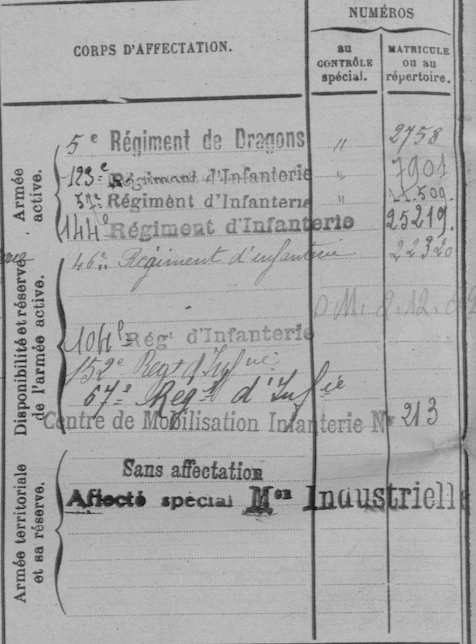 CORPS D'AFFECTATION.
NUMÉROS
au CONTRÔLE spécial.
MATRICULE ou au répertoire.
Armée active.
5e Régiment de Dragons " 2758
123e Régiment d'Infanterie " 7901
57e Régiment d'Infanterie " 11.509
144e Régiment d'Infanterie 25219.
Disponibilité et réserve de l'armée active.
46e Régiment d'infanterie 22320
O.M. 2.12.
104e Rég' d'Infanterie
152e Regt d'Infie
67e Regt d'Infie
Centre de Mobilisation Infanterie No 213
Armée territoriale et sa réserve.
Sans affectation
Affecté spécial Mon Industrielle